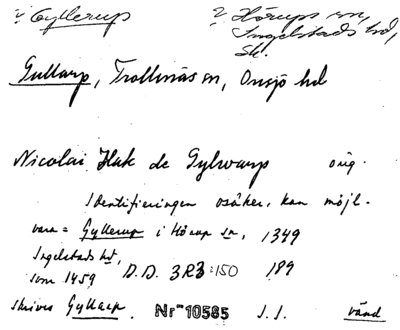 v. Gyllerup
v. Hörups sn,
Ingelstads hd,
Sk.
Gullarp, Trollenäs sn, Onsjö hd
Nicolai Hak de Gylwarp orig.
Identifieringen osäker, kan möjl.
vara = Gyllerup i Hörup sn, 1349
Ingelstads hd,
som 1459 D.D. 3R3:150 189
skrives Gyllarp. Nr 10585 S.S. vänd